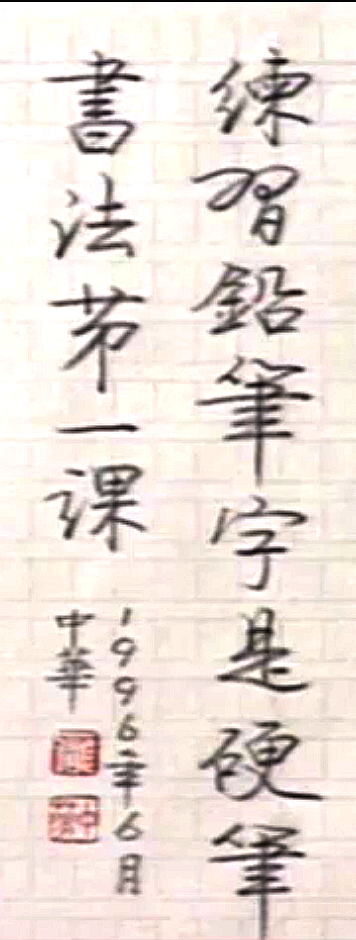 練習鉛筆字是硬筆
書法苐一課
1996年6月
中華